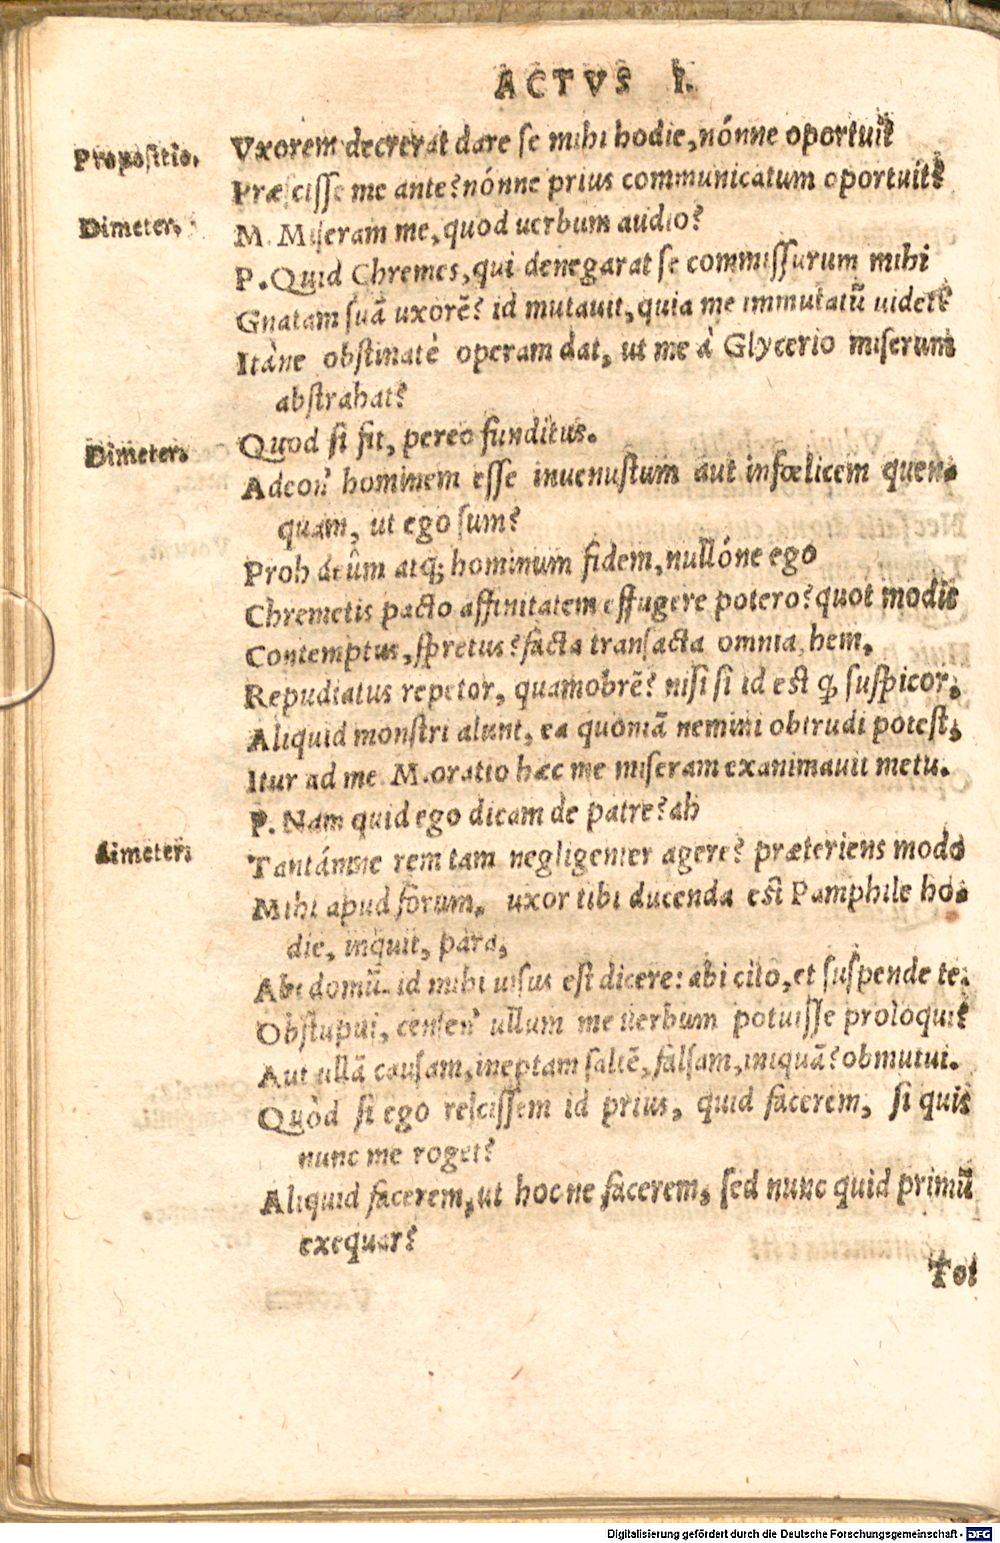 ACTVS I.
Propositio. Vxorem decrerat dare se mihi hodie, nónne oportuit
Præscisse me ante? nónne prius communicatum oportuit?
Dimeter. M. Miseram me, quod uerbum audio?
P. Quid Chremes, qui denegarat se commissurum mihi
Gnatam suã uxorẽ? id mutauit, quia me immutatũ uidet?
Itàne obstinatè operam dat, ut me à Glycerio miserum
abstrahat?
Dimeter. Quod si fit, pereo funditus.
Adeon' hominem esse inuenustum aut infœlicem quen-
quam, ut ego sum?
Proh deûm atq; hominum fidem, nullóne ego
Chremetis pacto affinitatem effugere potero? quot modis
Contemptus, spretus? facta transacta omnia, hem.
Repudiatus repetor, quamobrẽ? nisi si id est q̃ suspicor,
Aliquid monstri alunt, ea quoniã nemini obtrudi potest,
Itur ad me. M. oratio hæc me miseram exanimauit metu.
P. Nam quid ego dicam de patre? ah
dimeter. Tantámne rem tam negligenter agere? præteriens modo
Mihi apud forum, uxor tibi ducenda est Pamphile ho-
die, inquit, para,
Abi domũ. id mihi uisus est dicere: abi cito, et suspende te.
Obstupui, censen' ullum me uerbum potuisse proloqui?
Aut ullã causam, ineptam saltẽ, falsam, iniquã? obmutui.
Quòd si ego rescissem id prius, quid facerem, si quis
nunc me roget?
Aliquid facerem, ut hoc ne facerem, sed nunc quid primũ
exequar?
Tot
Digitalisierung gefördert durch die Deutsche Forschungsgemeinschaft - DFG